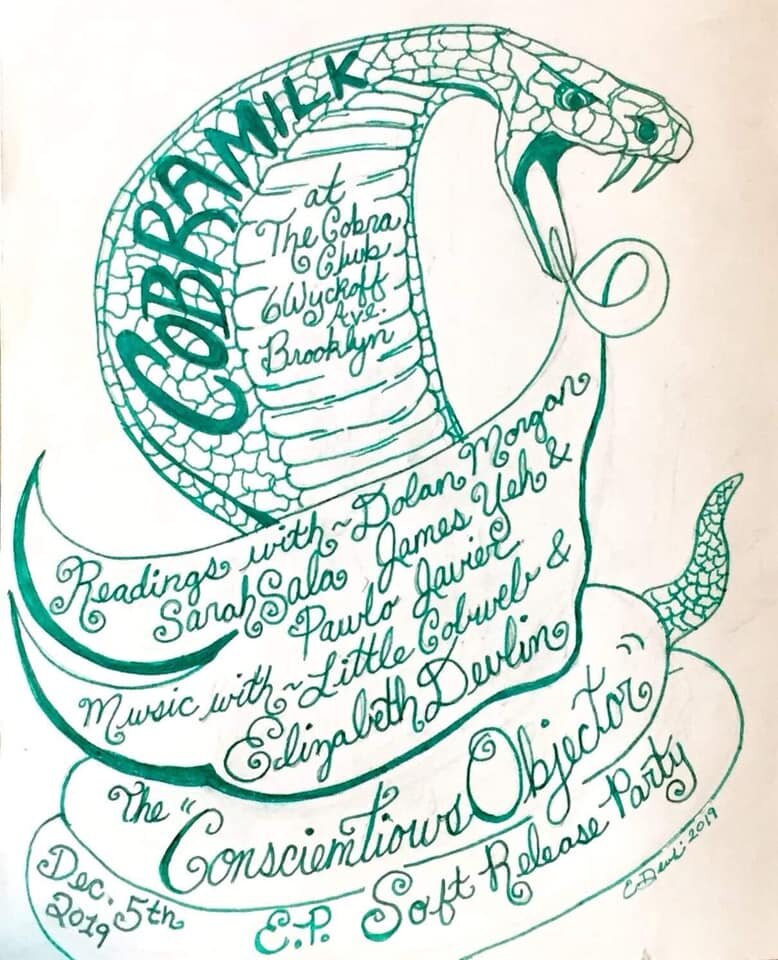 COBRA MILK
at
The Cobra
Club
6 Wyckoff
Ave.
Brooklyn
Readings with ~ Dolan Morgan
Sarah Sala James Yeh &
Pawlo Javier
Music with ~ Little Cobweb &
Elizabeth Devlin
The "Conscientious Objector"
E.P. Soft Release Party
Dec. 5th
2019
2019